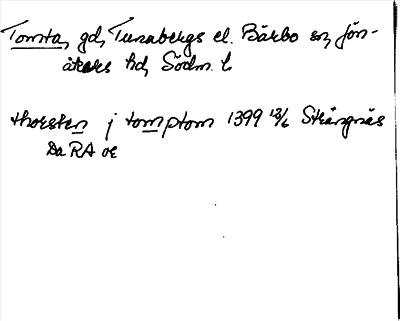 Tomta, gd, Tunabergs el. Bärbo sn, Jön-
åkers hd, Södm. l.
thorsten j tomptom 1399 13/6 Strängnäs
Da RA oe